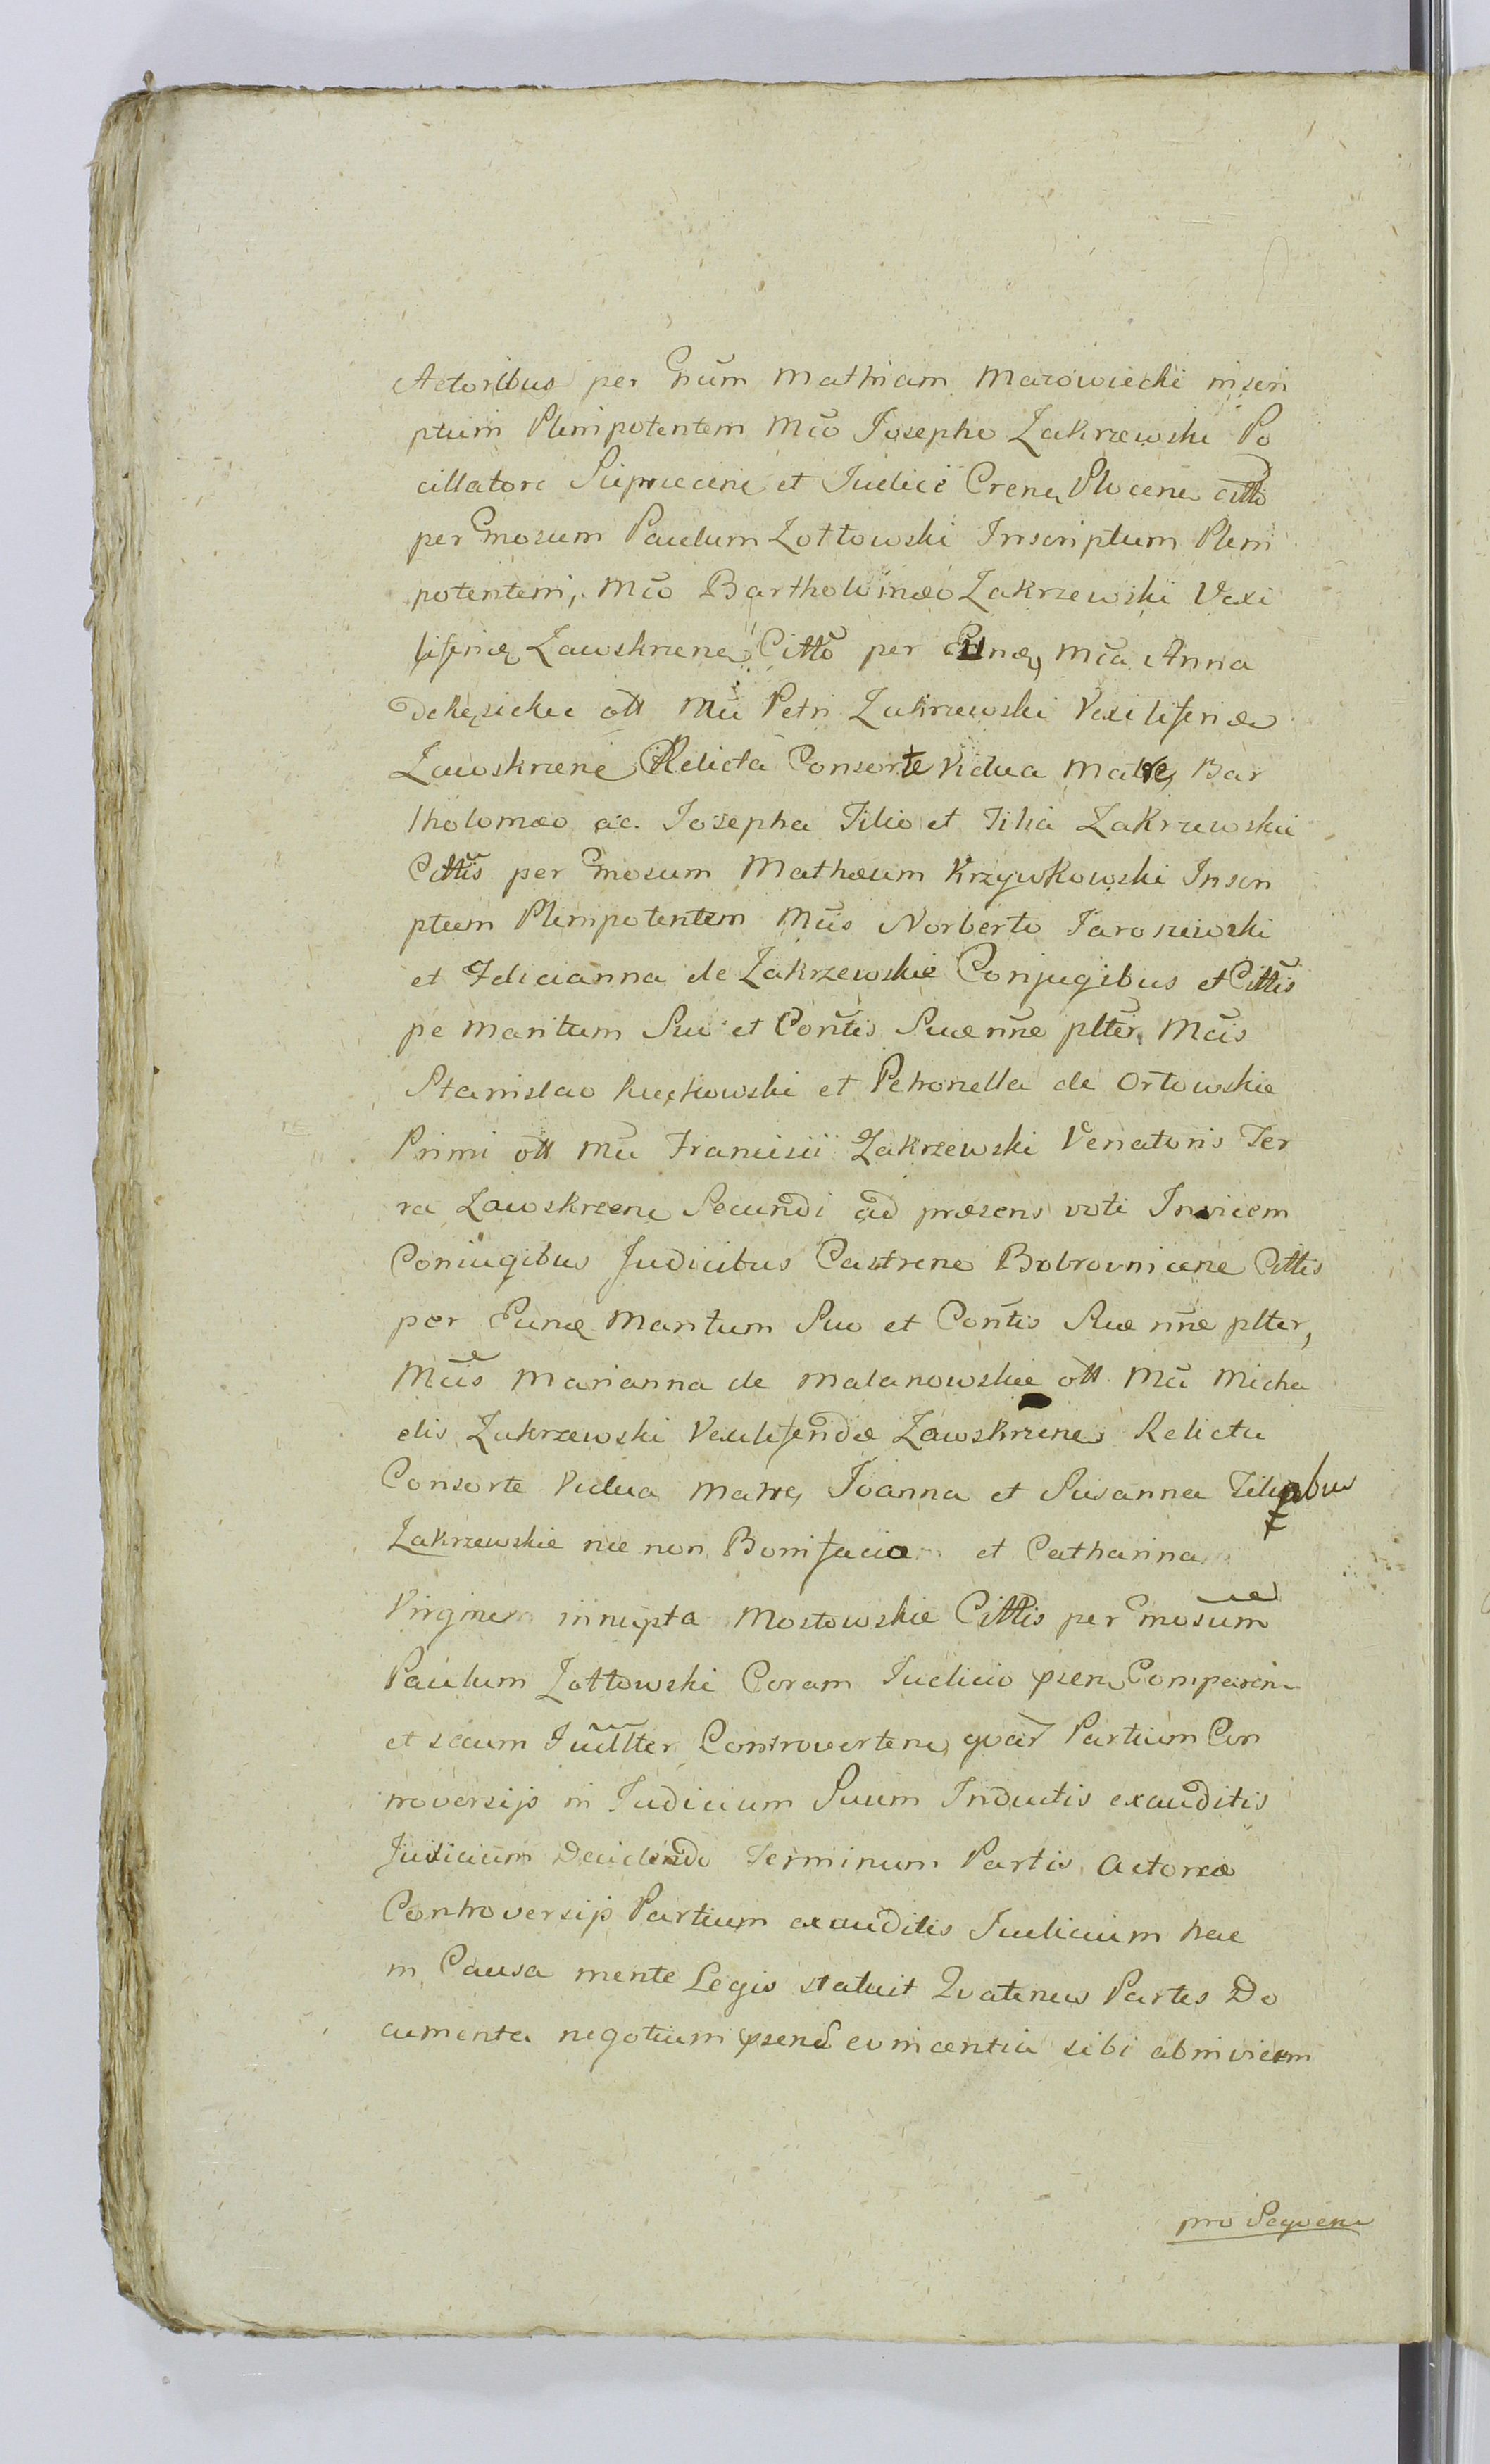 Actoribus per Gnum Mathiam Mazowiecki inscri
ptum Plenipotentem Mco Josepho Zakrzewski Po
cillatore Sieprecene et Judice Crene Plocene citto
per Gnosum Paulum Zołtowski Inscriptum Pleni
potentem, Mco Bartholomæo Zakrzewski Vexi
liferidæ Zawskrzene Citto per Eund, Mca Anna
ott Mci Petri Zakrzewski Vexiliferidæ
Zawskrzene Relicta Consorte Vidua Matre, Bar
tholomæo ac Josepha Filio et Filia Zakrzewskie
Cittis per Gnosum Mathæum Krzywkowski Inscri
ptum Plenipotentem Mcis Norberto Jaroszewski
et Feliciana de Zakrzewskie Conjugibus et Cittis
pe Maritum Suo et Contis Suæ nne plter, Mcis
Stanislao et Petronella de Orłowskie
Primi ott Mci Francisii Zakrzewski Venatoris Ter
ræ Zawskrzene Secundi ad præsens voti Invicem
Coniugibus Judicibus Castrene Bobrownicene Cittis
per Eund Maritum Suo et Contis Suæ nne plter,
Mcis Marianna de Malanowskie ott Mci Micha
elis Zakrzewski Vexiliferidæ Zawskrzene Relicta
Consorte Vidua Matre, Joanna et Susanna Filiabus
Zakrzewskie nec non Bonifacio et Catharina
Virgine innupta Mostowskie Cittis per Gnosum
Paulum Zołtowski Coram Judicio psen Comparen
et secum Juditter Controverten, quar Partium Con
troversijs in Judicium Suum Inductis exauditis
Judicium Decidendo Terminum Partis Actoreæ
Controversijs Partium exauditis Judicium hac
in Causa mente Legis statuit Quatenus Partes Do
cumenta negotium psens evincentia sibi abinvicem
pro Seqven